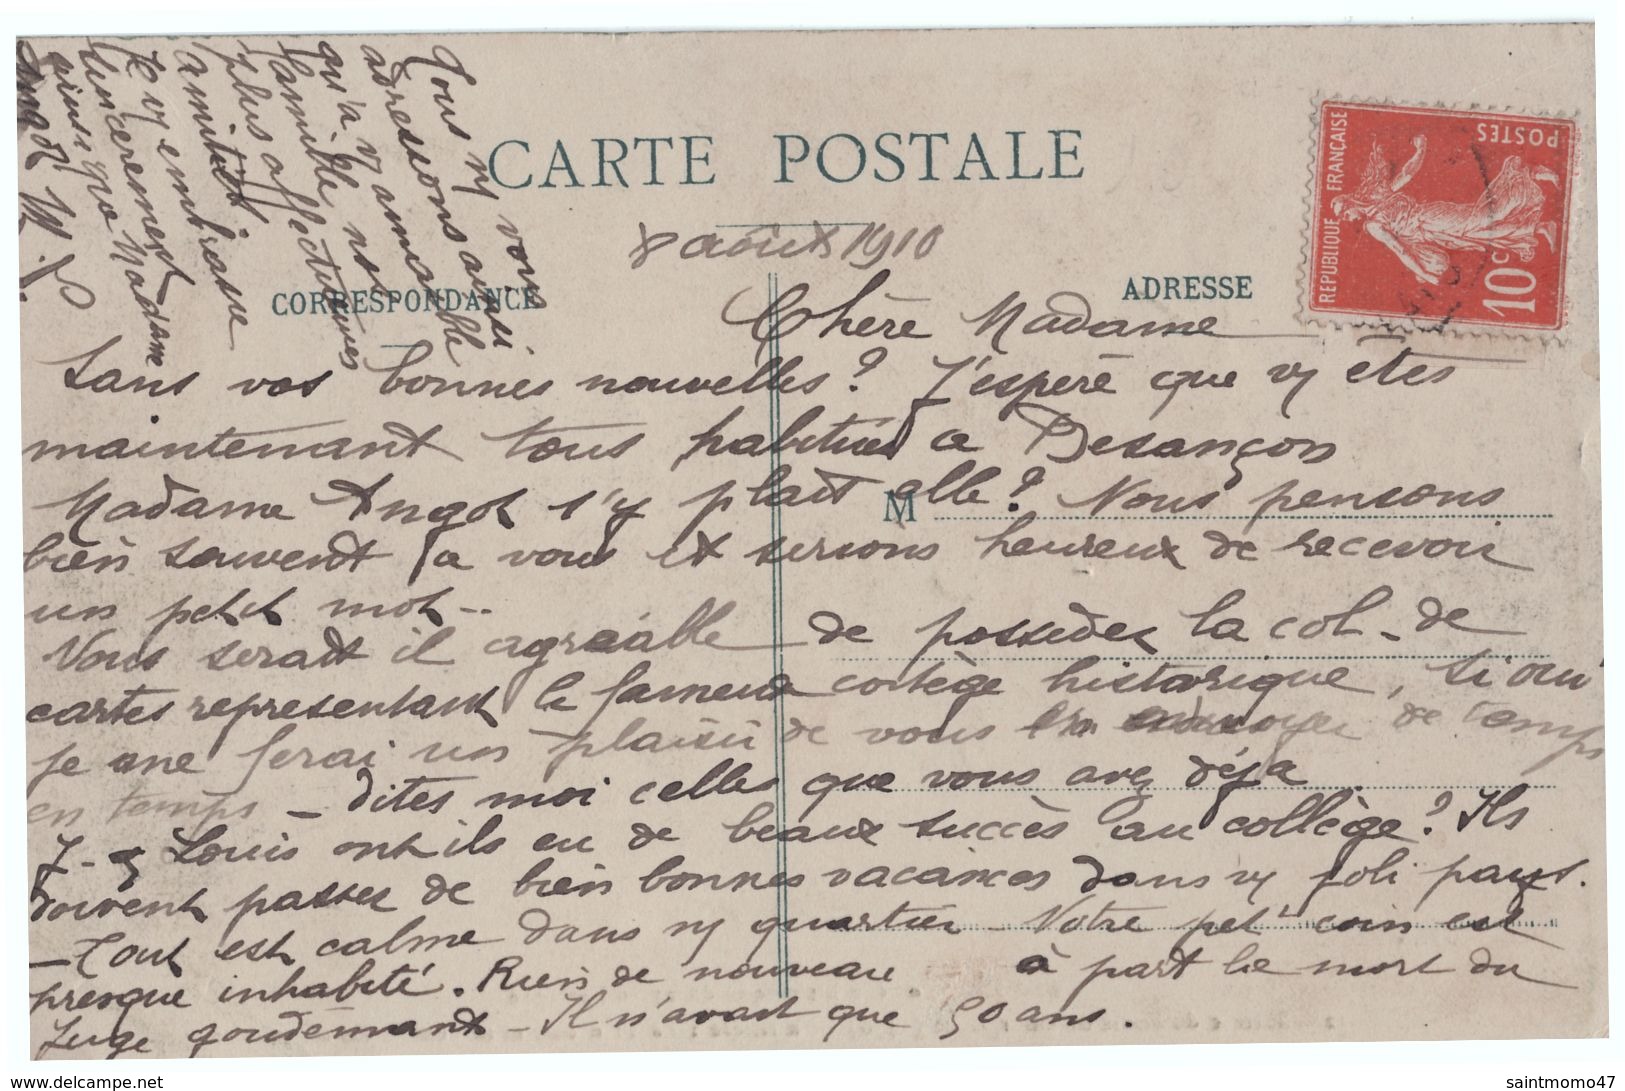 CARTE POSTALE
8 août 1910
CORRESPONDANCE
ADRESSE
REPUBLIQUE FRANÇAISE
POSTES
10 c
Chère Madame
Sans vos bonnes nouvelles? J'espère que vs êtes
maintenant tous habitués à Besançon
Madame Angot s'y plait elle? Nous pensons
M
bien souvent à vous et serions heureux de recevoir
un petit mot..
Vous serait il agréable de posséder la col. de
cartes représentant le fameux cortège historique, si oui
je me ferai un plaisir de vous en envoyer de temps
en temps - dites moi celles que vous avez déjà
J - Louis ont ils eu de beaux succès au collège? Ils
doivent passer de bien bonnes vacances dans vs joli pays.
- Tout est calme dans ns quartier - Votre pet' coin est
presque inhabité. Rien de nouveau à part le mort du
Juge goudemant - Il n'avait que 50 ans.
Tous ns vous
adressons ainsi
qu'à vs aimable
famille nos
plus affectueuses
amitiés
Je vs embrasse
sincèrement
ainsi que Madame
Angot
saintmomo47
www.delcampe.net